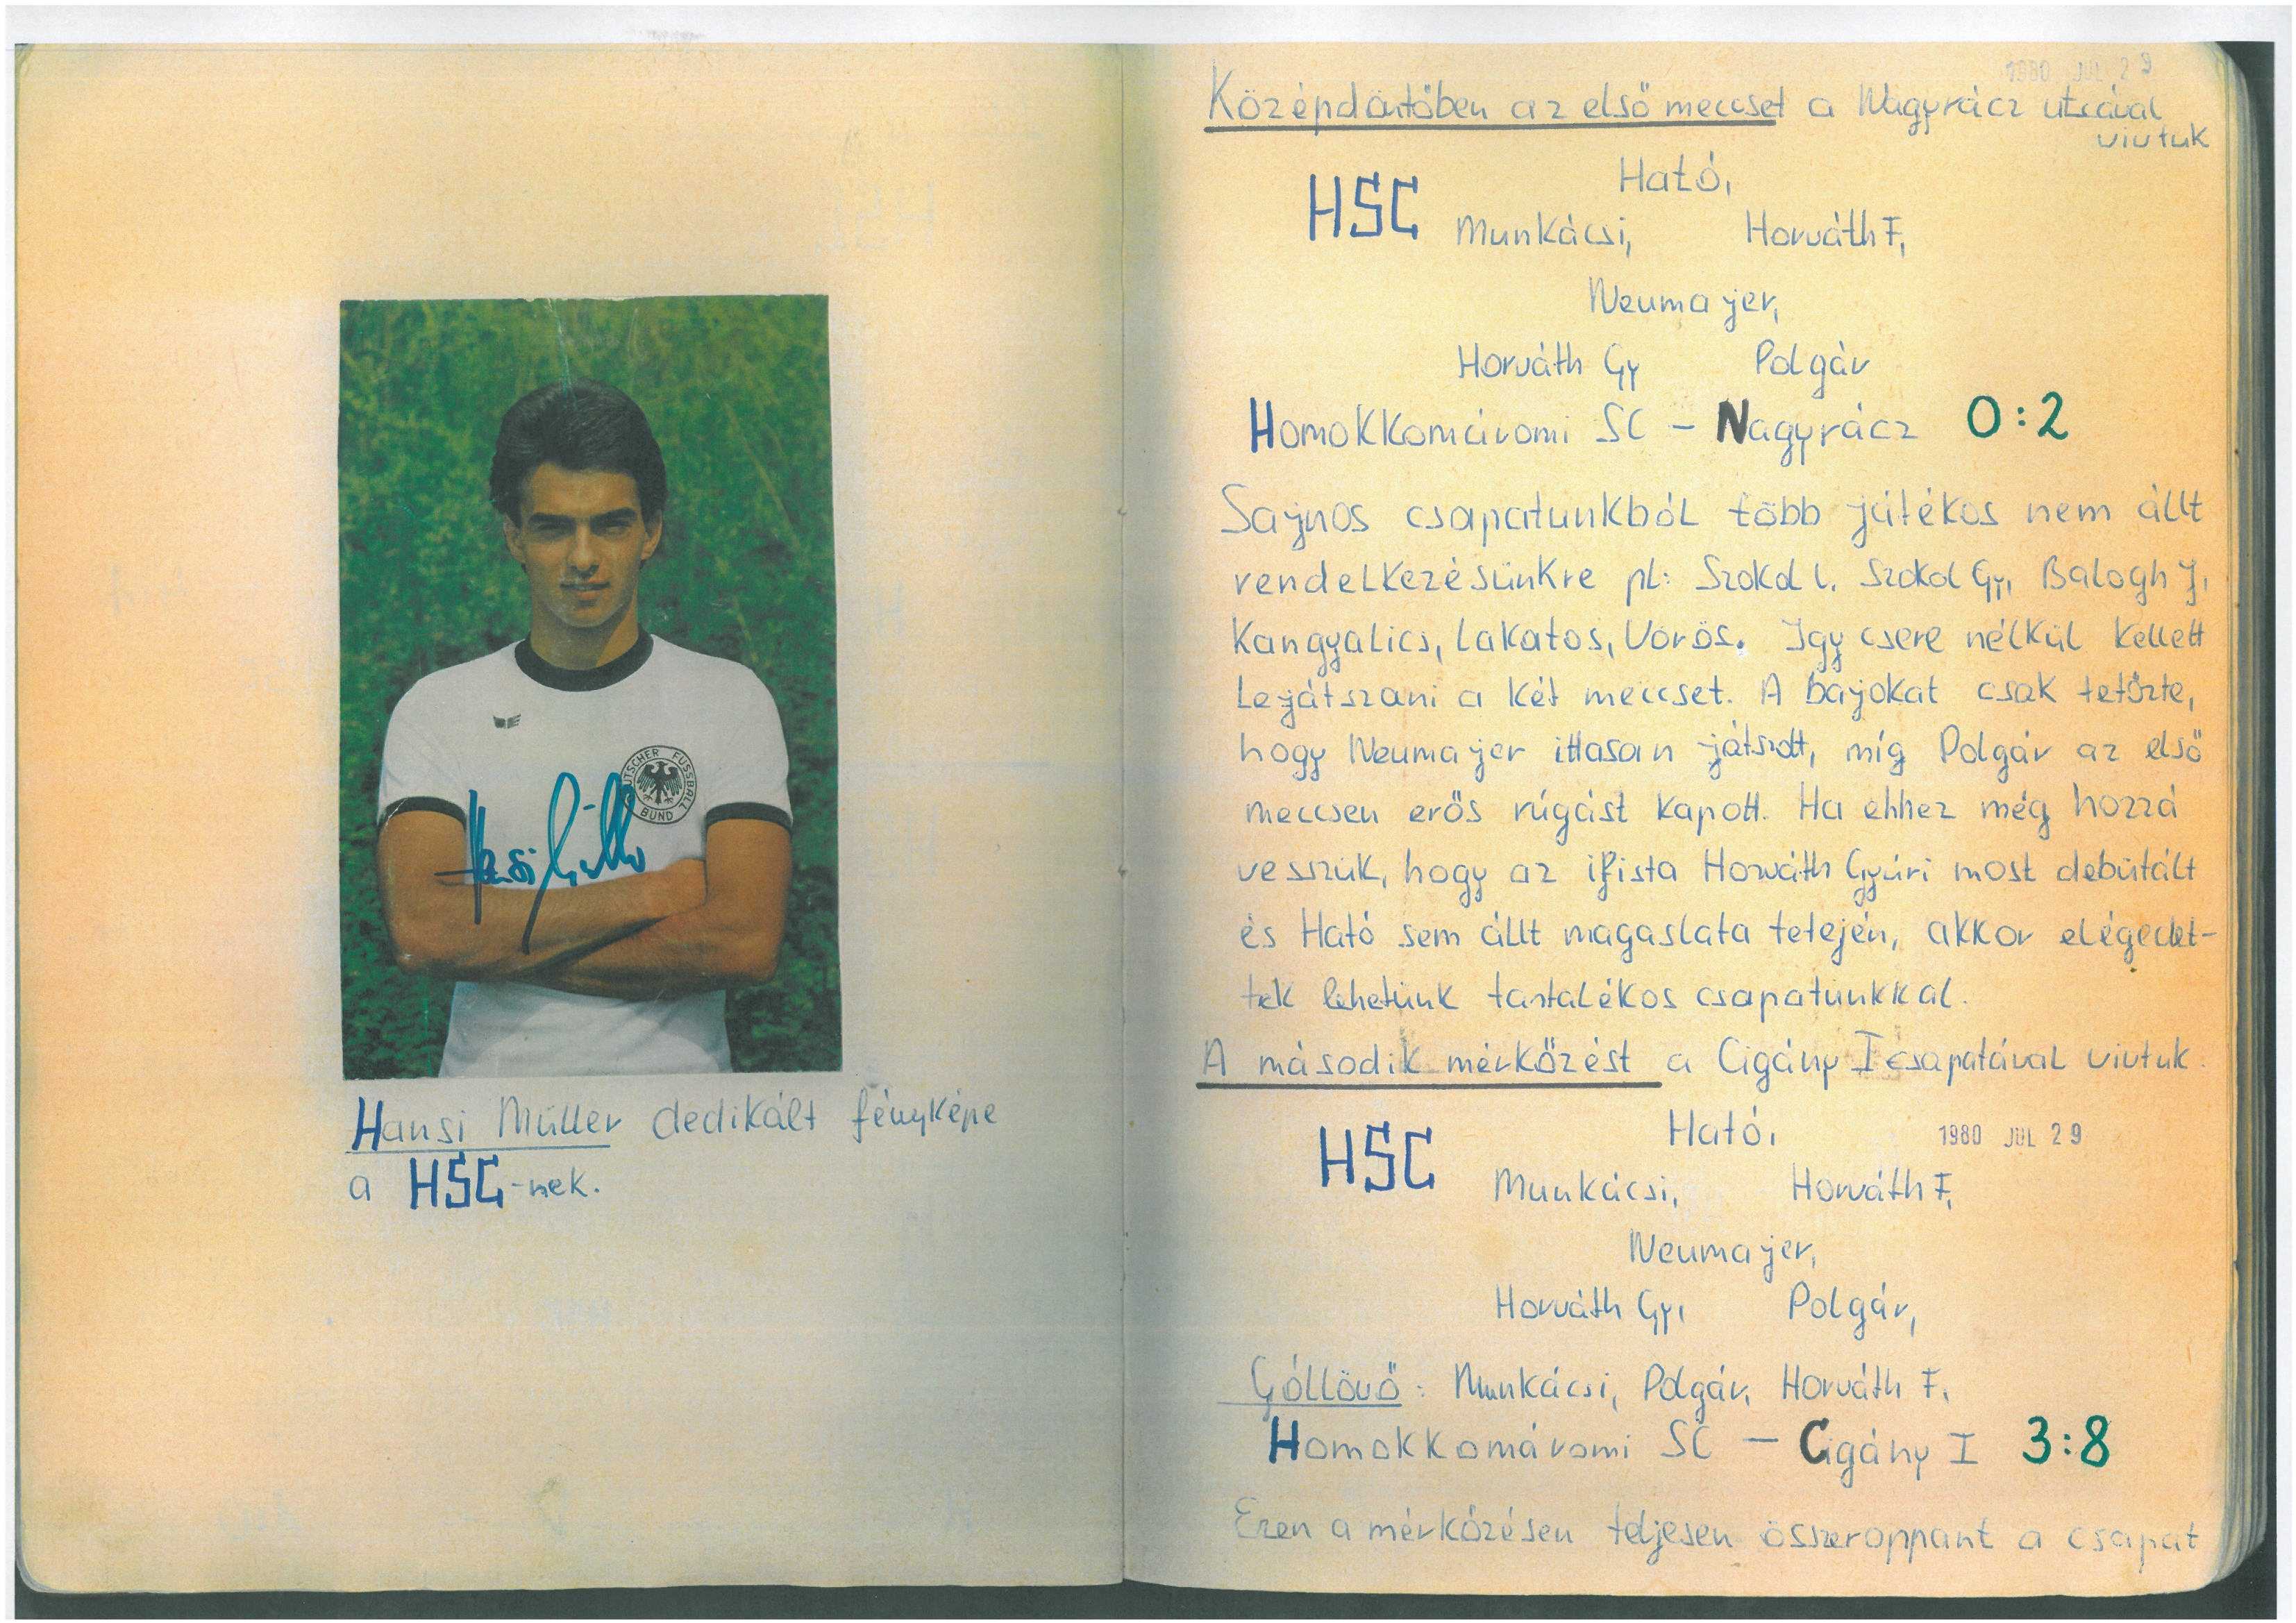 DEUTSCHER FUSSBALL BUND
Hansi Müller
Hansi Müller dedikált fényképe
a HSC-nek.
1980 JUL 29
Középdöntőben az első meccset a Nagyrácz utcával
vivtuk
Ható,
HSC Munkácsi, Horváth F,
Neumajer,
Horváth Gy Polgár
Homokkomáromi SC - Nagyrácz 0:2
Sajnos csapatunkból több játékos nem állt
rendelkezésünkre pl: Szokol l. Szokol Gy, Balogh J,
Kangyalics, Lakatos, Vörös. Igy csere nélkül kellett
Lejátszani a két meccset. A bajokat csak tetőzte,
hogy Neumajer ittasan játszott, míg Polgár az első
meccsen erős rúgást kapott. Ha ehhez még hozzá
vesszük, hogy az ifista Horváth Gyuri most debütált
és Ható sem állt magaslata tetején, akkor elégedet-
tek lehetünk tartalékos csapatunkkal.
A második mérkőzést a Cigány I csapatával vivtuk.
Ható, 1980 JUL 29
HSC Munkácsi, Horváth F,
Neumajer,
Horváth Gy, Polgár,
Góllövő: Munkácsi, Polgár, Horváth F.
Homokkomáromi SC - Cigány I 3:8
Ezen a mérkőzésen teljesen összeroppant a csapat